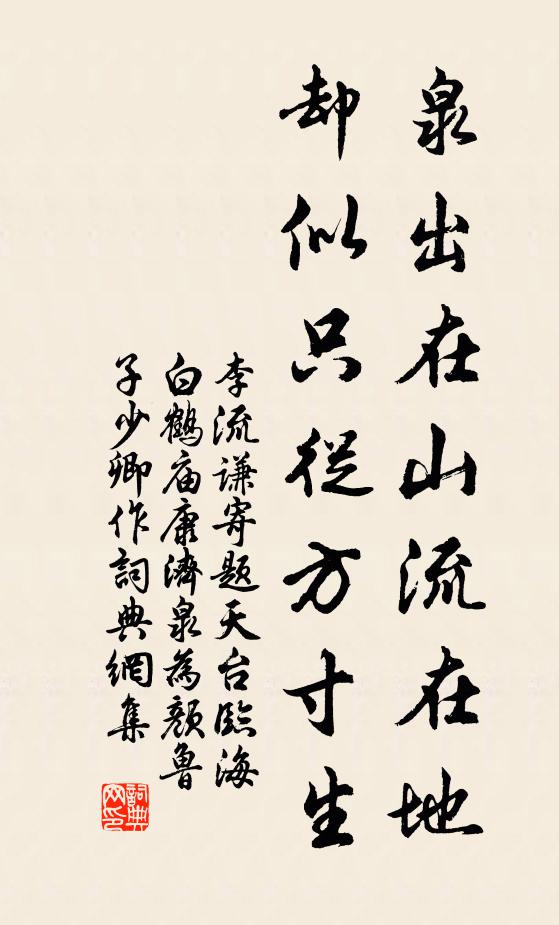 泉出在山流在地
却似只從方寸生
李流謙寄題天台臨海
白鶴庙康濟泉為顏魯
子少卿作詞典網集
詞典网印